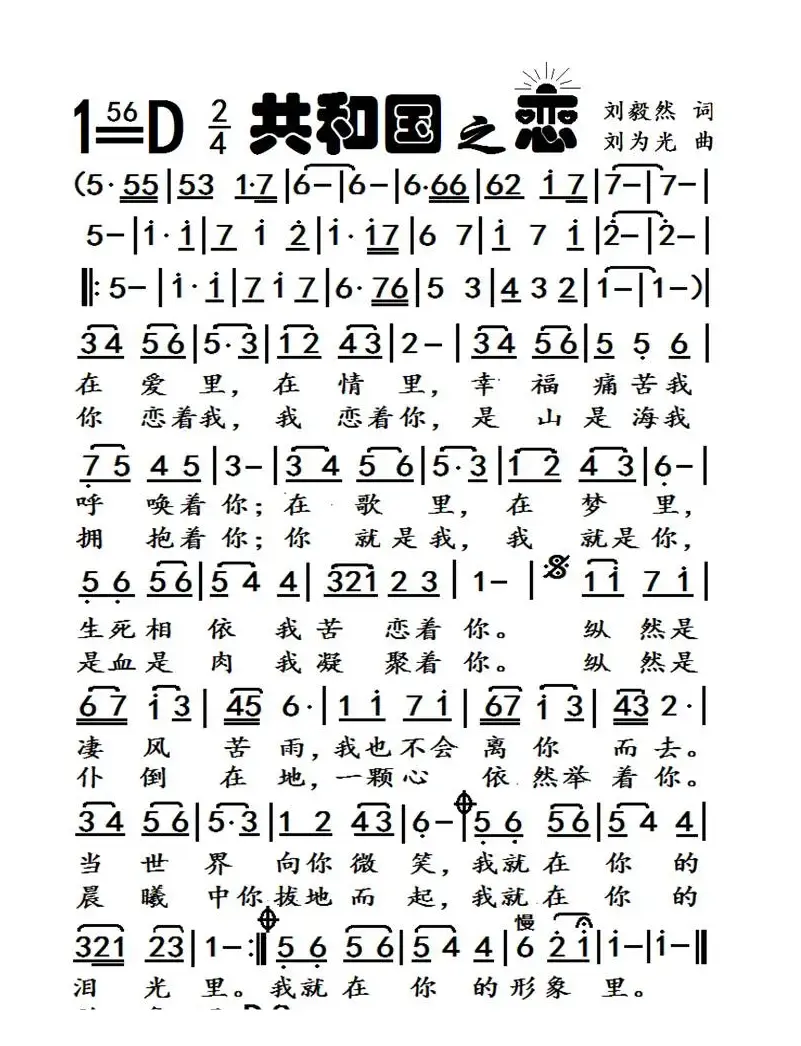 1=D 56 2/4 共和国之恋 刘毅然 词
刘为光 曲
(5· 55|53 1·7|6-|6-|6·66|62 1 7|7-|7-|
5-|1·1|7 1 2|1·17|6 7|1 7 1|2-|2-|
‖:5-|1·1|7 1 7|6·76|5 3|4 3 2|1-|1-)|
3 4 5 6|5·3|1 2 4 3|2-|3 4 5 6|5 5 6|
在爱里，在情里，幸福痛苦我
你恋着我，我恋着你，是山是海我
7 5 4 5|3-|3 4 5 6|5·3|1 2 4 3|6-|
呼唤着你；在歌里，在梦里，
拥抱着你；你就是我，我就是你，
5 6 5 6|5 4 4|321 2 3|1-|1 1 7 1|
生死相依我苦恋着你。纵然是
是血是肉我凝聚着你。纵然是
6 7 1 3|45 6·|1 1 7 1|67 1 3|43 2·|
凄风苦雨，我也不会离你而去。
仆倒在地，一颗心依然举着你。
3 4 5 6|5·3|1 2 4 3|6-|5 6 5 6|5 4 4|
当世界向你微笑，我就在你的
晨曦中你拔地而起，我就在你的
慢
321 23|1-:‖5 6 5 6|5 4 4|6 2 1|1-|1-|
泪光里。我就在你的形象里。